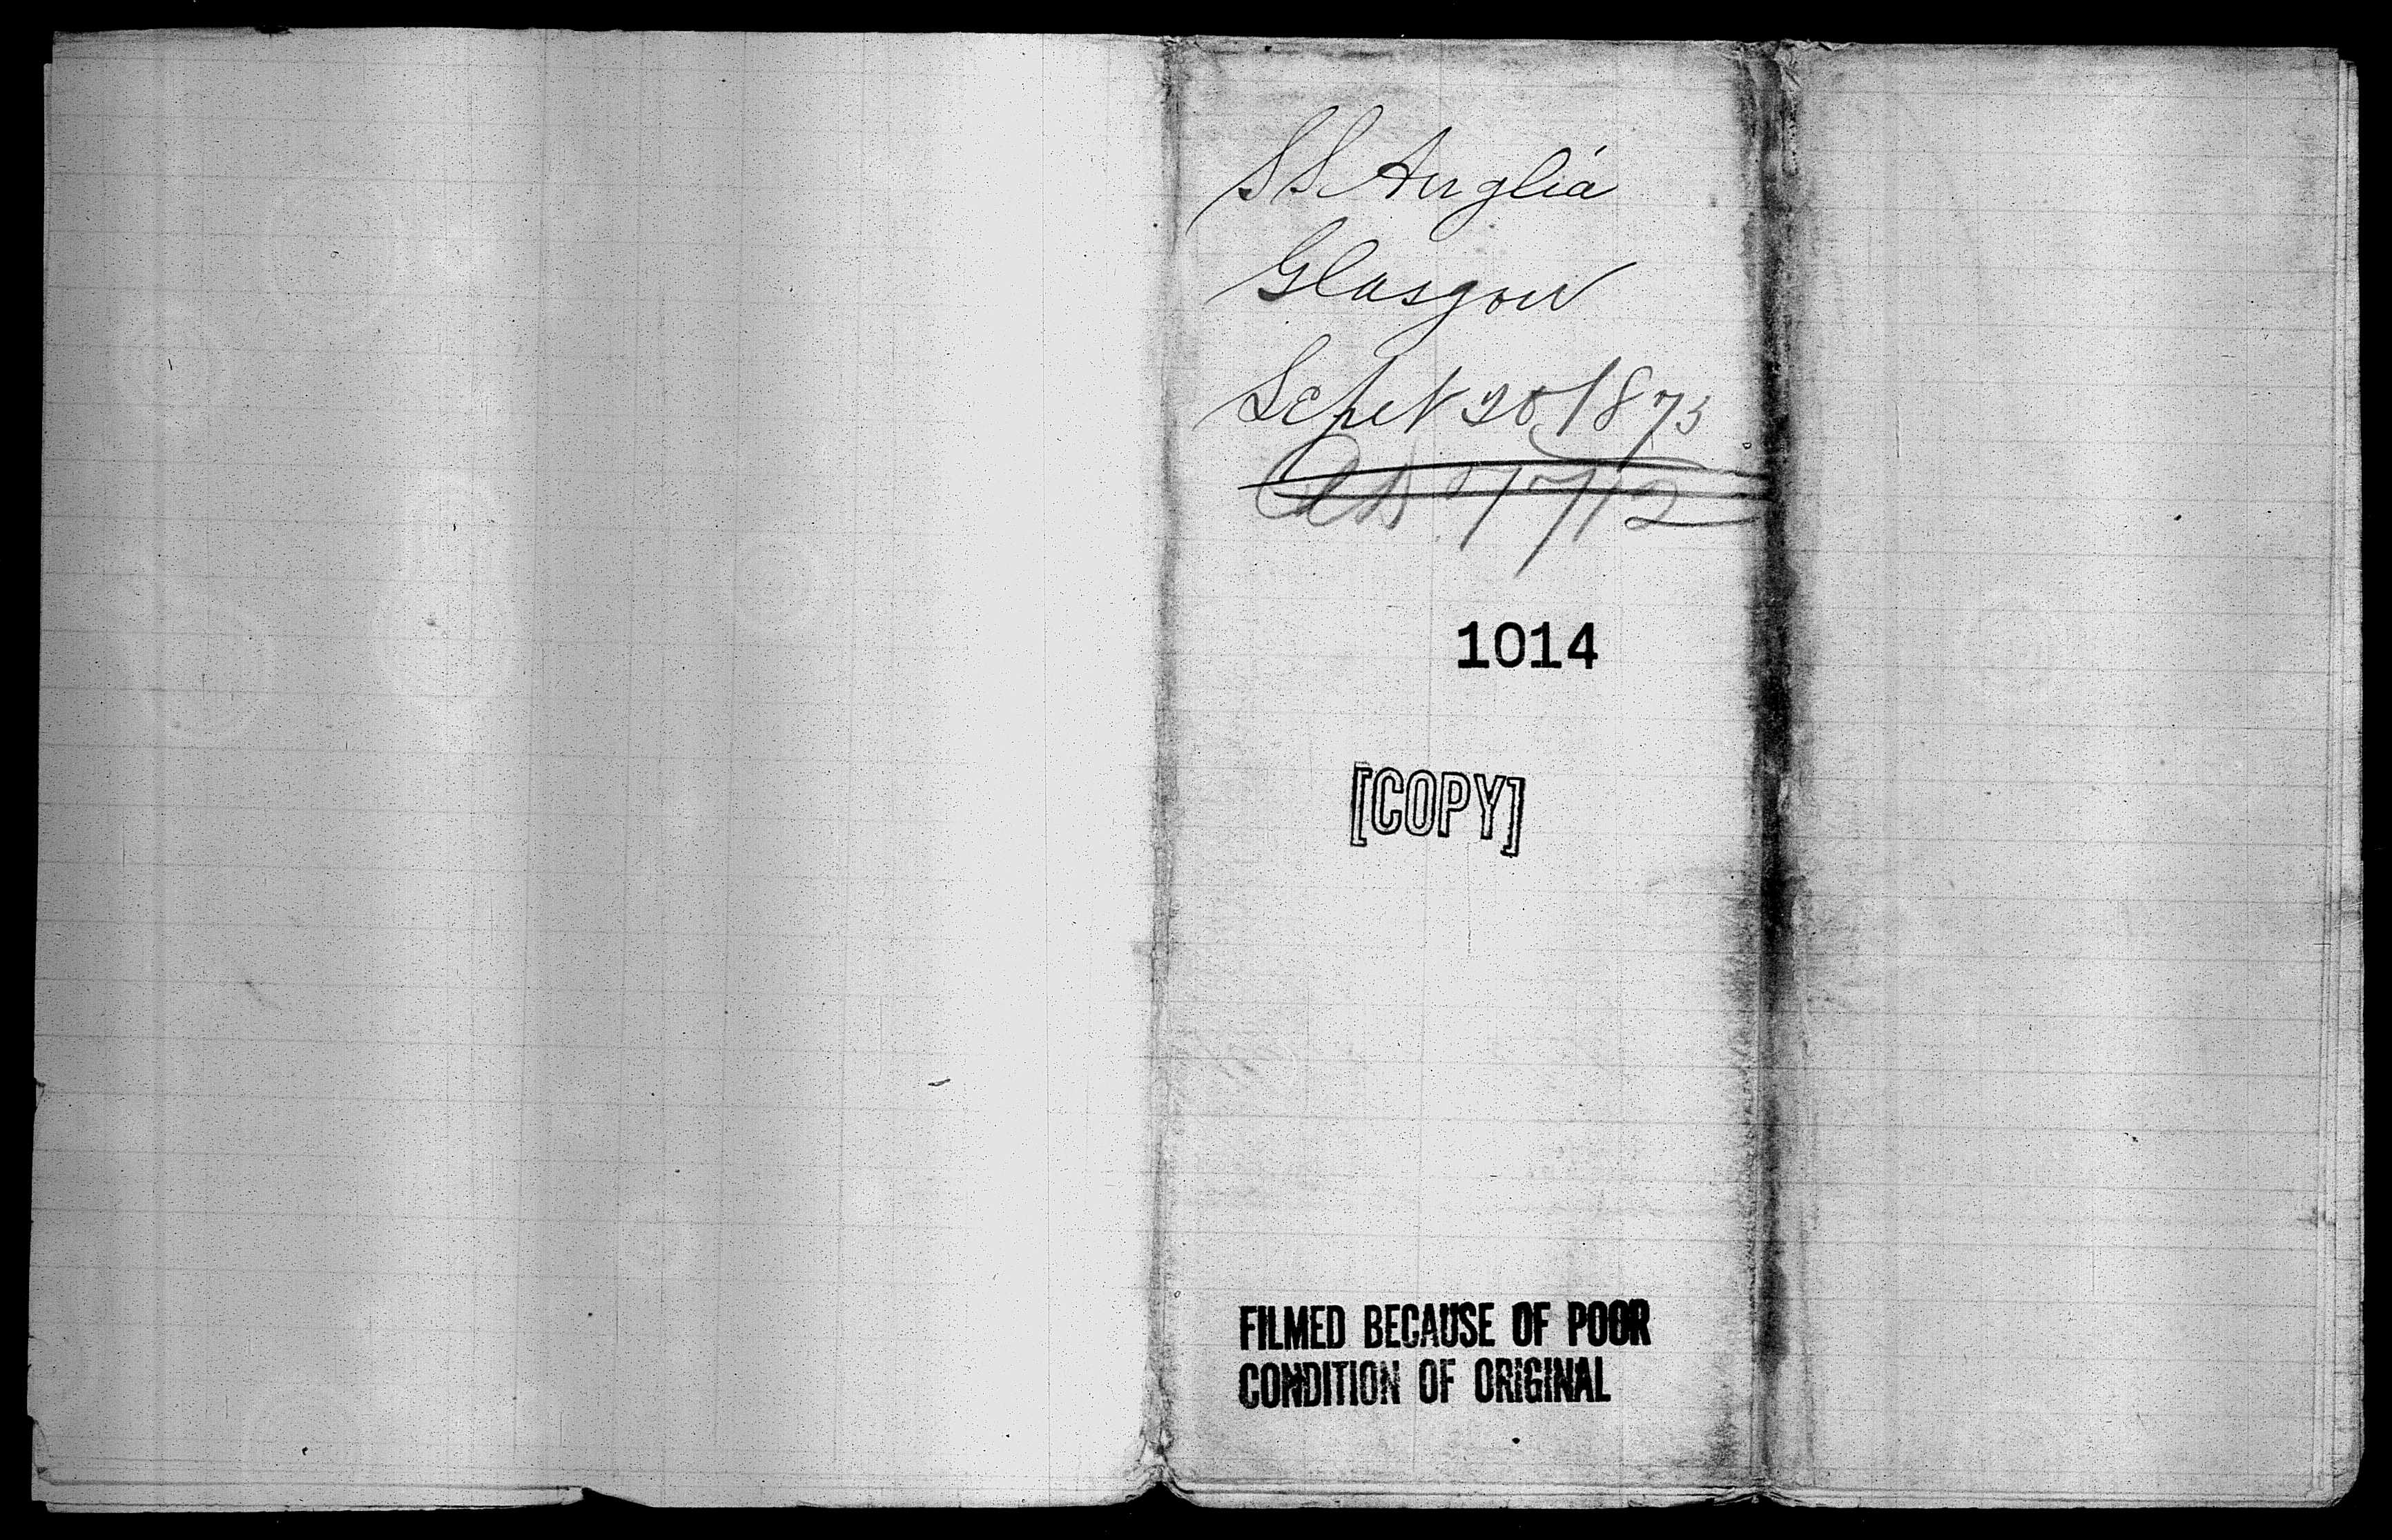 SS Anglia
Glasgow
Sept 20 1873
1014
[COPY]
FILMED BECAUSE OF POOR
CONDITION OF ORIGINAL